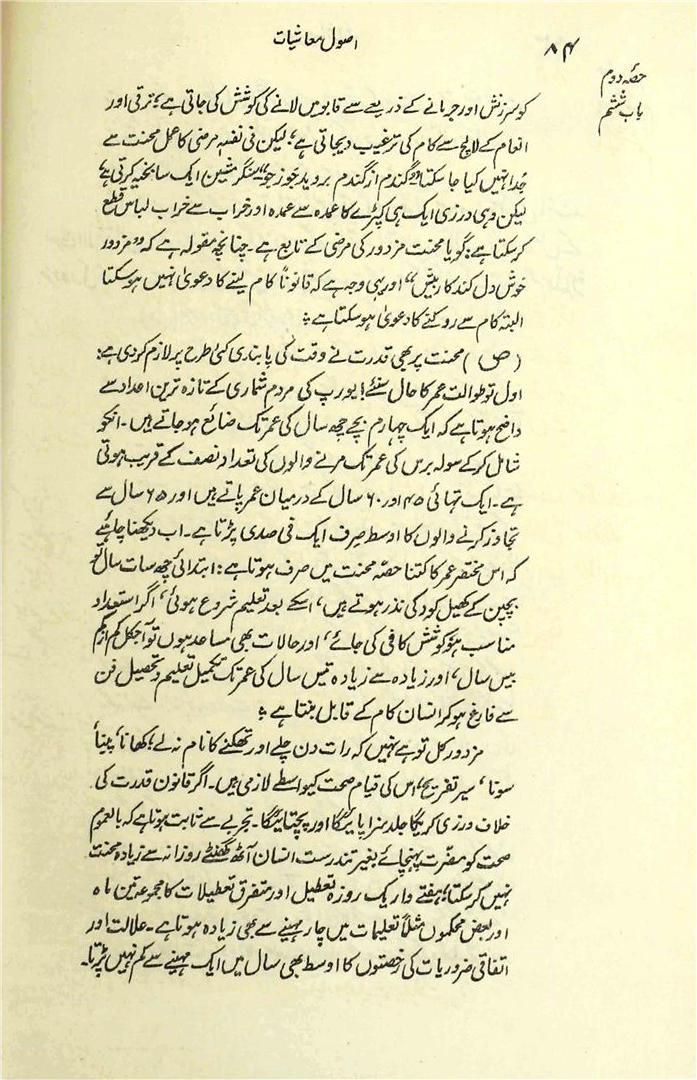 اصول معاشیات
۸۴
حصۂ دوم
باب ششم
کو سرزنش اور جرمانے کے ذریعے سے قابو میں لانے کی کوشش کی جاتی ہے؛ ترقی اور
انعام کے لالچ سے کام کی ترغیب دیجاتی ہے؛ لیکن فی نفسہٖ مرضی کا عمل محنت سے
جدا نہیں کیا جا سکتا "گندم از گندم بروید جو ز جو" سنگر مشین ایک سا بخیہ کرتی ہے
لیکن وہی درزی ایک ہی کپڑے کا عمدہ سے عمدہ اور خراب سے خراب لباس قطع
کر سکتا ہے: گویا محنت مزدور کی مرضی کے تابع ہے۔ چنانچہ مقولہ ہے کہ "مزدور
خوش دل کند کار بیش" اور یہی وجہ ہے کہ قانوناً کام لینے کا دعویٰ نہیں ہو سکتا
البتہ کام سے روکنے کا دعویٰ ہو سکتا ہے ؞
(ص) محنت پر بھی قدرت نے وقت کی پابندی کئی طرح پر لازم کر دی ہے:
اول تو طوالت عمر کا حال سنئے! یورپ کی مردم شماری کے تازہ ترین اعداد سے
واضح ہوتا ہے کہ ایک چہارم بچے چھ سال کی عمر تک ضائع ہو جاتے ہیں۔ انکو
شامل کر کے سولہ برس کی عمر تک مرنے والوں کی تعداد نصف کے قریب ہوتی
ہے۔ ایک تہائی ۴۵ اور ۶۰ سال کے درمیان عمر پاتے ہیں اور ۶۵ سال سے
تجاوز کرنے والوں کا اوسط صرف ایک فی صدی پڑتا ہے۔ اب دیکھنا چاہئے
کہ اس مختصر عمر کا کتنا حصہ محنت میں صرف ہوتا ہے: ابتدائی چھ سات سال تو
بچپن کے کھیل کود کی نذر ہوتے ہیں، اسکے بعد تعلیم شروع ہوئی، اگر استعداد
مناسب ہو، کوشش کافی کی جائے، اور حالات بھی مساعد ہوں تو آجکل کم از کم
بیس سال، اور زیادہ سے زیادہ تیس سال کی عمر تک تکمیل تعلیم و تحصیل فن
سے فارغ ہو کر انسان کام کے قابل بنتا ہے ؞
مزدور کل تو ہے نہیں کہ رات دن چلے اور تھکنے کا نام نہ لے؛ کھانا، پینا،
سونا، سیر تفریح، اس کی قیام صحت کیواسطے لازمی ہیں۔ اگر قانون قدرت کی
خلاف ورزی کریگا جلد سزا پائیگا اور پچتائیگا۔ تجربے سے ثابت ہوتا ہے کہ بالعموم
صحت کو مضرت پہنچائے بغیر تندرست انسان آٹھ گھنٹے روزانہ سے زیادہ محنت
نہیں کر سکتا؛ ہفتے وار یک روزہ تعطیل اور متفرق تعطیلات کا مجموعہ تین ماہ
اور بعض محکموں مثلاً تعلیمات میں چار مہینے سے بھی زیادہ ہوتا ہے۔ علالت اور
اتفاقی ضروریات کی رخصتوں کا اوسط بھی سال میں ایک مہینے سے کم نہیں پڑتا۔